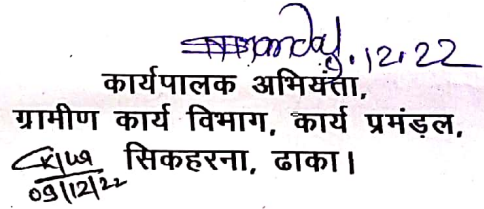 9.12.22
कार्यपालक अभियंता,
ग्रामीण कार्य विभाग, कार्य प्रमंड़ल,
सिकहरना, ढाका।
09/12/22